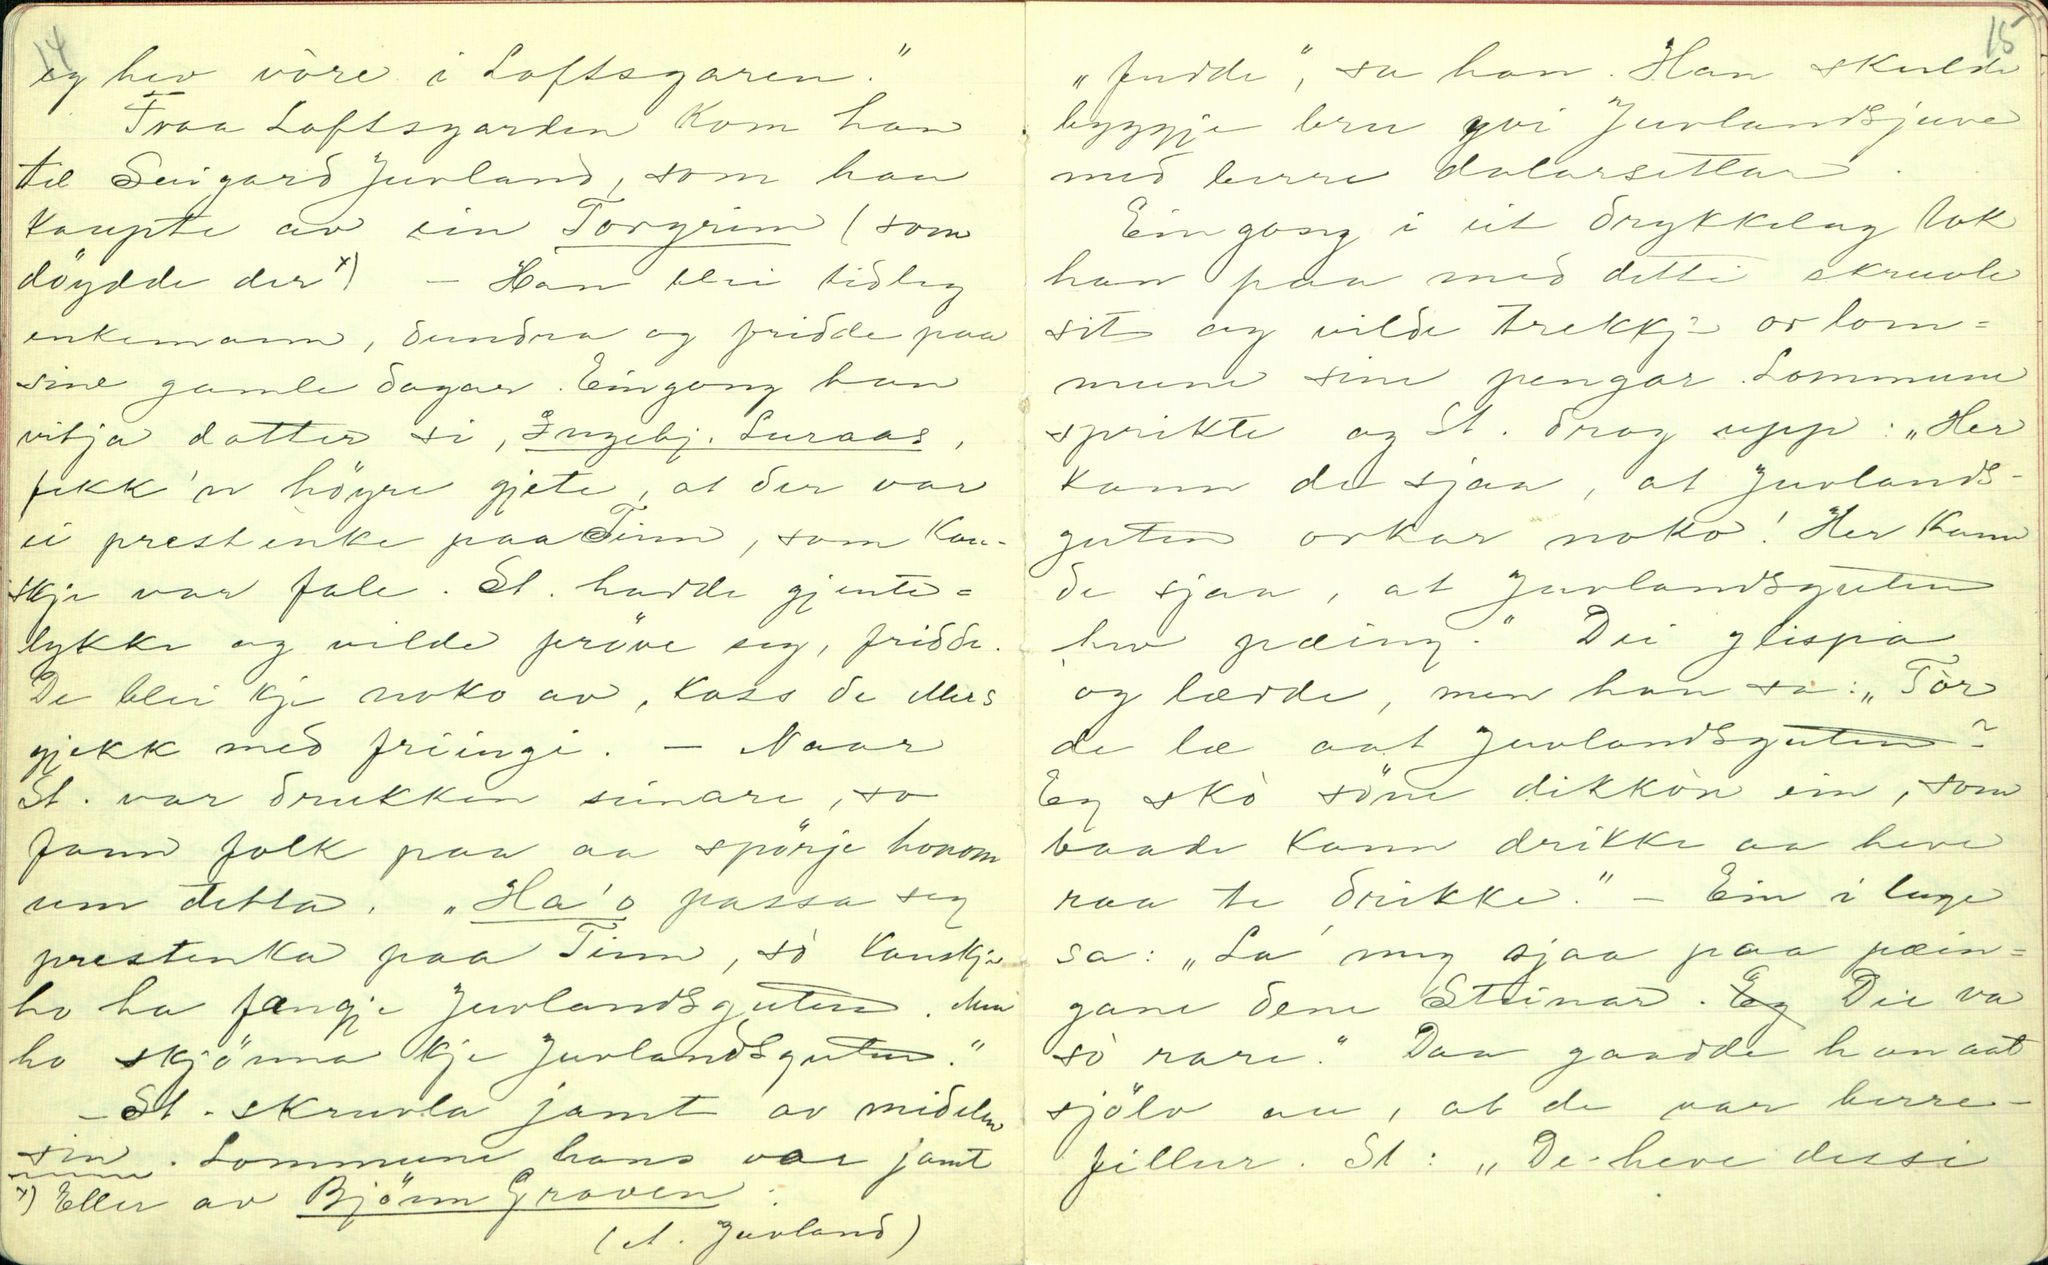 14
eg hev vòre i Loftsgaren."
Fraa Loftsgarden kom han
til Seigard Juvland, som han
kaupte av ein Torgrim (som
döydde der x) – Han blei tidleg
enkemann, dundra og fridde paa
sine gamle dagar. Eingong han
vitja datter si, Ingebj. Luraas,
fekk 'n höyre gjete, at der var
ei prestenke paa Tinn, som kan-
skje var fale. St. hadde gjente-
lykke og vilde pröve seg, fridde.
De blei kje noko av, kass de ellers
gjekk med friingi. – Naar
St. var drukken seinare, so
fann folk paa aa spörje honom
um detta. "Ha'o passa seg
prestenka paa Tinn, sò kanskje
ho ha fengje Juvlandsguten. Men
ho skjönna kje Juvlandsguten."
– St. skruvla jamt av midelen
sin. Lommune hans var jamt
x) Eller av Björn Graven.
(A. Juvland)
15
"fudde", sa han. Han skulde
byggje bru yvi Juvlandsjuve
med berre dalarsetlar.
Ein gong i eit drykkelag tok
han paa med dette skruvle
sit og vilde trekkje or lom-
mune sine pengar. Lommune
sprikte og St. drog upp: "Her
kann de sjaa, at Juvlands-
guten orkar noko! Her kann
de sjaa, at Juvlandsguten
hev pæing." Dei glispa
og lædde, men han sa: "Tòr
de læ aat Juvlandsguten?
Eg skò sönè dikkòn ein, som
baade kann drikke aa heve
raa te drikke." – Ein i lage
sa: "La' meg sjaa paa pæin-
gane dene Steinar. Eg Dei va
sò rare." Daa gaadde han aat
sjölv au, at de var berre
fillur. St: "De heve dessi